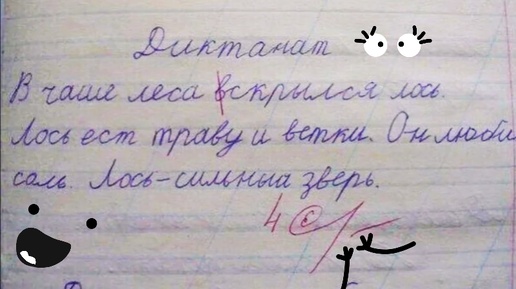 Диктанат
В чаще леса вскрылся лось.
Лось ест траву и ветки. Он люби
соль. Лось-сильныа зверь.
4 с/-